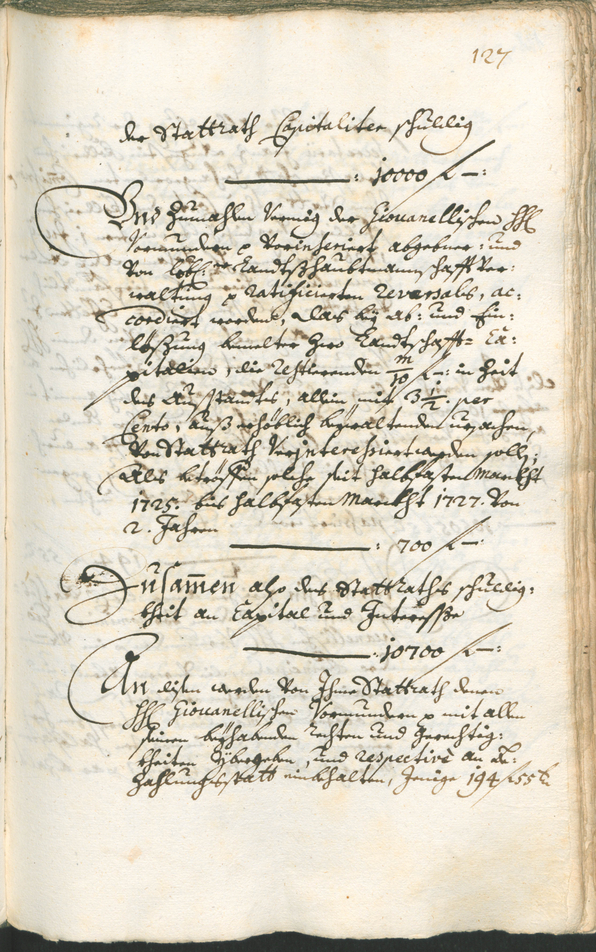 127
der Stattrath Capitaliter schuldig
: 10000 f —:
Und Zumahlen Vermög der Giovanellischen HH
Vormundern p Vorinseriert abgebner: und
Von Löbl: Landtshaubtmannschafft Ver:
waltung p ratificierten Reversalis, ac:
cordiert worden, das biß ab: und Ein:
lößung bemelter Zwo Landtschaffts Ca:
pitalien, die restierenden m/10 f —: in Zeit
des Ausstandtes, allein mit 3 1/2 per
Cento, auß erhöblich beywaltenden ursachen,
Von Stattrath Verinteressiert werden soll;
Als betreffen solche seit halbfasten Marckht
1725. bis halbfasten Marckht 1727. Von
2. Jahren
: 700 f —:
Zusamen also des Stattraths schuldig:
kheit an Capital und Interesse
: 10700 f —:
An disen werden Von Ihme Stattrath denen
HH Giovanellischen Vormundern p mit allen
seinen beyhabenden rechten und Gerechtig:
kheiten Übergeben, und respectivè an Be:
Zahlungsstatt einbehalten, Jenige 194 f 55 k